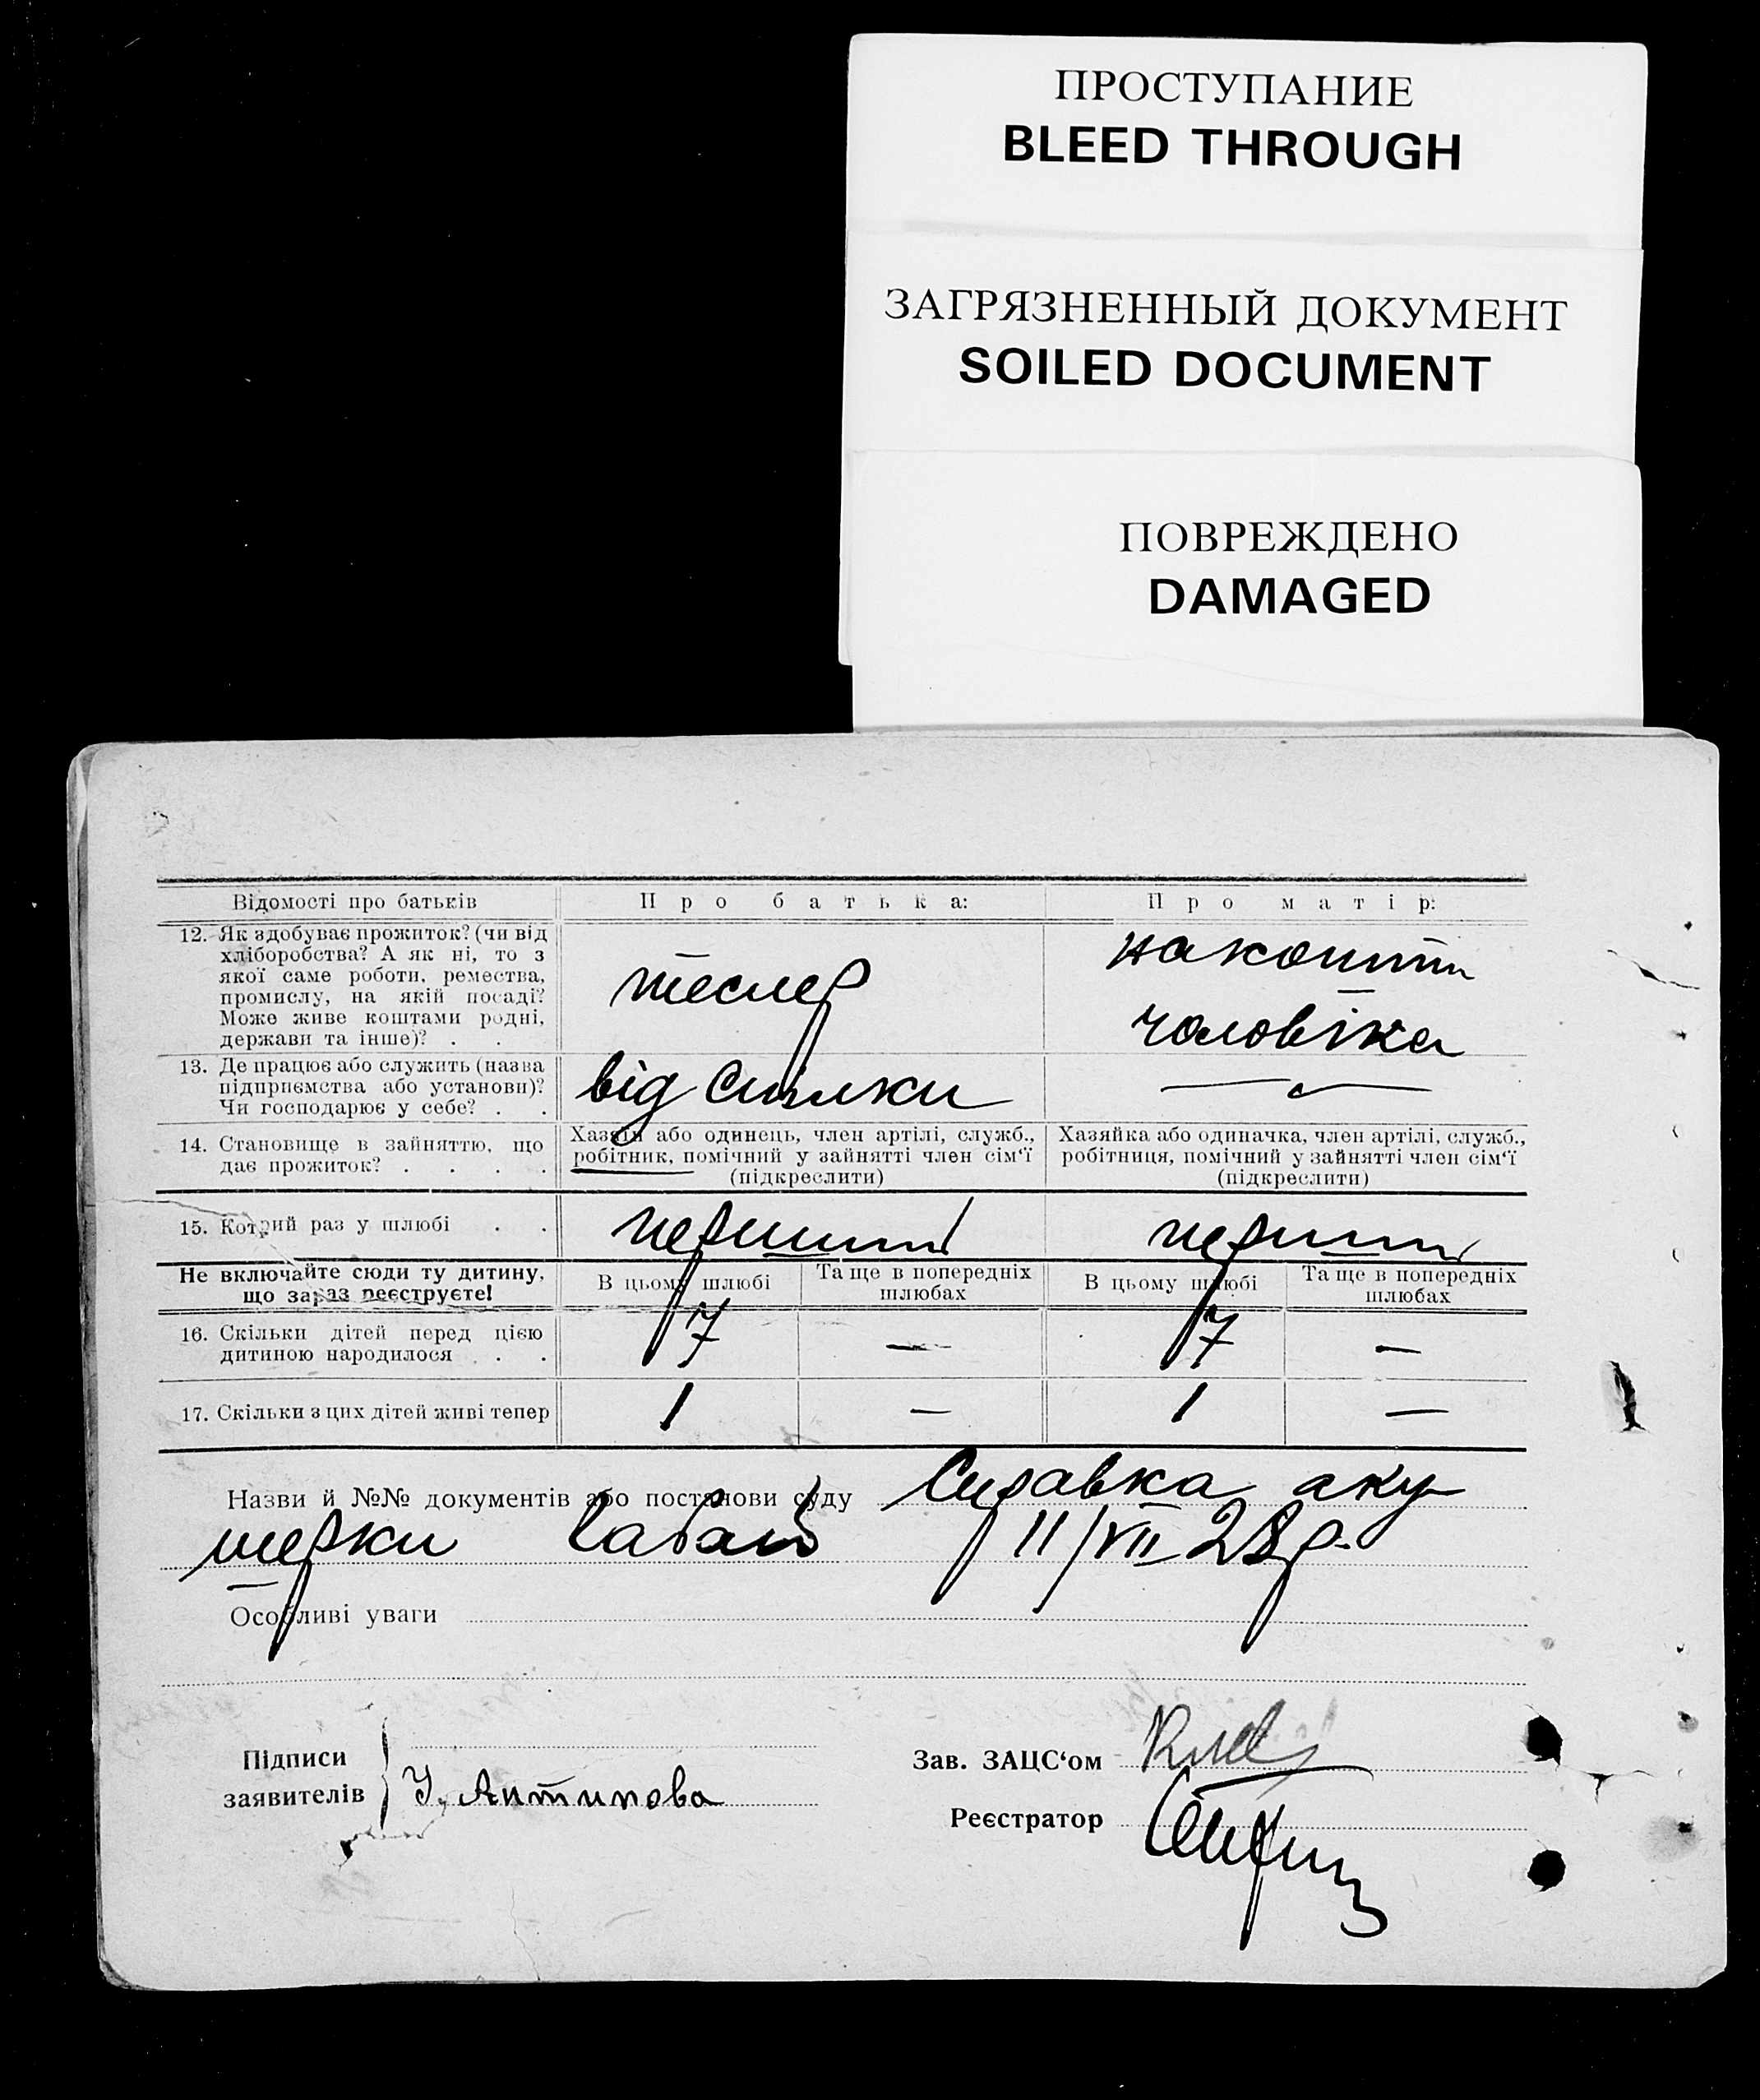 ПРОСТУПАНИЕ
BLEED THROUGH
ЗАГРЯЗНЕННЫЙ ДОКУМЕНТ
SOILED DOCUMENT
ПОВРЕЖДЕНО
DAMAGED
Відомості про батьків
Про батька:
Про матір:
12. Як здобуває прожиток? (чи від
хліборобства? А як ні, то з
якої саме роботи, ремества,
промислу, на якій посаді?
Може живе коштами родні,
держави та інше)? . .
тесляр
на кошти
чоловіка
13. Де працює або служить (назва
підприємства або установи)?
Чи господарює у себе? . .
від Спілки
—
14. Становище в зайняттю, що
дає прожиток? . . . .
Хазяїн або одинець, член артілі, служб.,
робітник, помічний у зайнятті член сім‘ї
(підкреслити)
Хазяйка або одиначка, член артілі, служб.,
робітниця, помічний у зайнятті член сім‘ї
(підкреслити)
15. Котрий раз у шлюбі . .
перший
перший
Не включайте сюди ту дитину,
що зараз реєструєте!
В цьому шлюбі
Та ще в попередніх
шлюбах
В цьому шлюбі
Та ще в попередніх
шлюбах
16. Скільки дітей перед цією
дитиною народилося . .
7 — 7 —
17. Скільки з цих дітей живі тепер
1 — 1 —
Назви й №№ документів або постанови суду Справка аку-
шерки 11/VII 28 р.
Особливі уваги
Підписи
заявителів
У. Антипова
Зав. ЗАЦС‘ом
Реєстратор